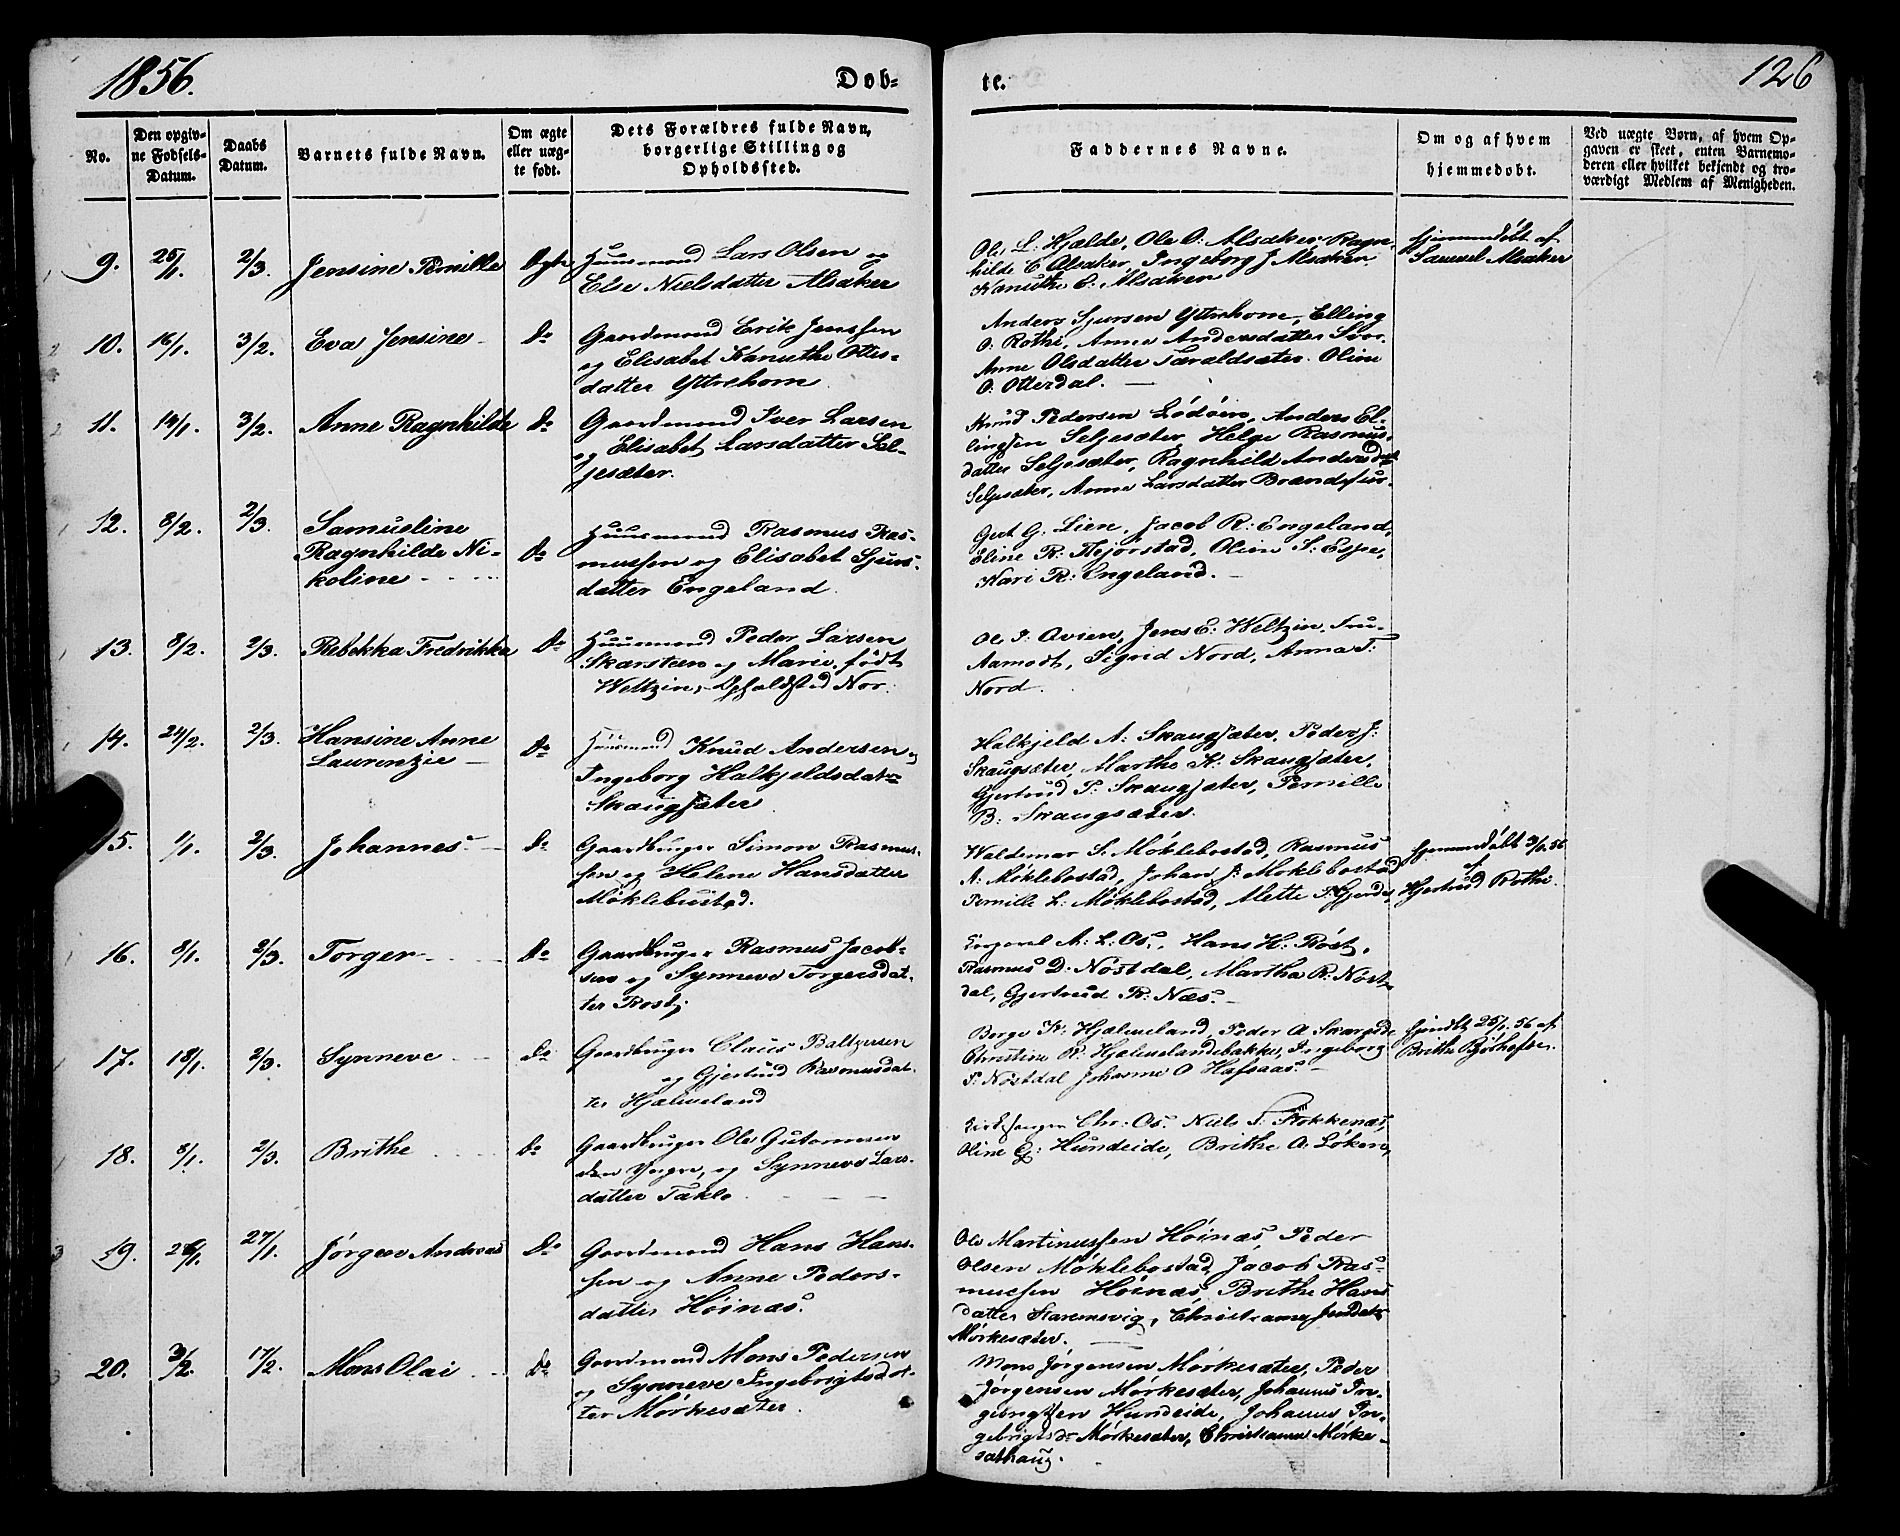 1856.
Døb-
te.
126
No.
Den opgiv-
ne Fødsels-
Datum.
Daabs
Datum.
Barnets fulde Navn.
Om ægte
eller uæg-
te født.
Dets Forældres fulde Navn,
borgerlige Stilling og
Opholdssted.
Faddernes Navne.
Om og af hvem
hjemmedøbt.
Ved uægte Børn, af hvem Op-
gaven er skeet, enten Barnemo-
deren eller hvilket bekjendt og tro-
værdigt Medlem af Menigheden.
9. 25/1. 2/3. Jensine Pernille Ægte
Huusmand Lars Olsen og
Else Nielsdatter Alsaker
Ole L. Hjelde, Ole O: Alsaker, Ragn-
hilde E Alsaker, Ingeborg J Alsaker
Hjemmedøbt af
Samuel Alsaker
10. 16/1. 3/2. Eva Jensine Do
Gaardmand Erik Jenssen
og Elisabet Kanuthe Ottes-
datter Yttrehorn.
Anders Sjursen Yttrehorn, Elling
O: Rothi, Anne Andersdatter
Anne Olsdatter Taraldsæter. Oline
O: Otterdal.
11. 14/1. 3/2. Anne Ragnhilde Do
Gaardmand Iver Larsen
og Elisabet Larsdatter Sel-
jesæter.
Knud Pedersen Lødøen, Anders El-
lingsen Seljesæter, Helge Rasmus-
datter Seljesæter, Ragnhild Andersdatt
Seljesæter, Anne Larsdatter
12. 8/2. 2/3. Samueline
Ragnhilde Ni-
koline Do
Huusmand Rasmus Ras-
mussen og Elisabet Sjurs-
datter Engeland.
Gert G. Lien, Jacob R: Engeland,
Eline R: Hejorstad, Olien S: Espe,
Kari R: Engeland.
13. 8/2. 2/3. Rebekka Fredrikke Do
Huusmand Peder Larsen
Skarsteen og Marie, født
Weltzin, Opholdsted Nor.
Ole I: Qvien, Jens E: Weltzin, Fru
Aamodt, Sigrid Nord, Anna T:
Nord.
14. 24/2. 2/3. Hansine Anne
Laurenzie Do
Huusmand Knud Andersen og
Ingeborg Halkjeldsdatr
Skaugsæter
Halkjeld A: Skaugsæter, Peder J:
Skaugsæter, Marthe K: Skaugsæter,
Gjertrud P: Skaugsæter, Pernille
B: Skaugsæter.
15. 1/1. 2/3. Johannes Do
Gaardbruger Simon Rasmus-
sen og Helene Hansdatter
Møklebustad.
Waldemar S. Møklebostad, Rasmus
A: Møklebostad, Johan J: Møklebostad
Pernille L: Møklebostad, Mette
Hjemmedøbt 3/1 56
af
Gjertrud Rothi.
16. 8/1. 2/3. Torger Do
Gaardbruger Rasmus Jacob-
sen og Synneve Torgersdat-
ter Røst.
Korporal A: L: Os, Hans H: Røst,
Rasmus D: Nøstdal, Martha R: Nøst-
dal, Gjertrud R: Næs.
17. 18/1. 2/3. Synneve Do
Gaardbruger Claus Baltzersen
og Gjertrud Rasmusdat-
ter Hjelmeland
Børge K: Hjelmeland, Peder A
Christine R: Hjelmelandsbakke, Ingeborg
P. Nøstdal Johanne O Hafsaas.
Hjemdt 25/1. 56 af
Brithe
18. 8/1. 2/3. Brithe Do
Gaardbruger Ole Gutormsen
den Yngre, og Synneve Lars-
datter Takle.
Kirkesanger Chr: Os. Niels S. Stokkenæs,
Oline G: Hundeide, Brithe A. Løken,
19. 26/1. 27/1. Jørgen Andreas Do
Gaardmand Hans Hans-
sen og Anne Peders-
datter Høinæs.
Ole Martinussen Høinæs Peder
Olsen Møklebostad, Jacob Ras-
mussen Høinæs, Brithe Hans
datter Staremsvig, Christiane Jensdatr
Mørkesæter.
20. 3/2. 17/2. Mons Olai Do
Gaardmand Mons Pedersen
og Synneve Ingebrigtsdat-
ter Mørkesæter.
Mons Jørgensen Mørkesæter, Peder
Jørgensen Mørkesæter, Johannes In-
gebrigtsen Hundeide, Johanne In-
gebrigtsdr Mørkesæter, Christiane Mørke-
sæthaug.